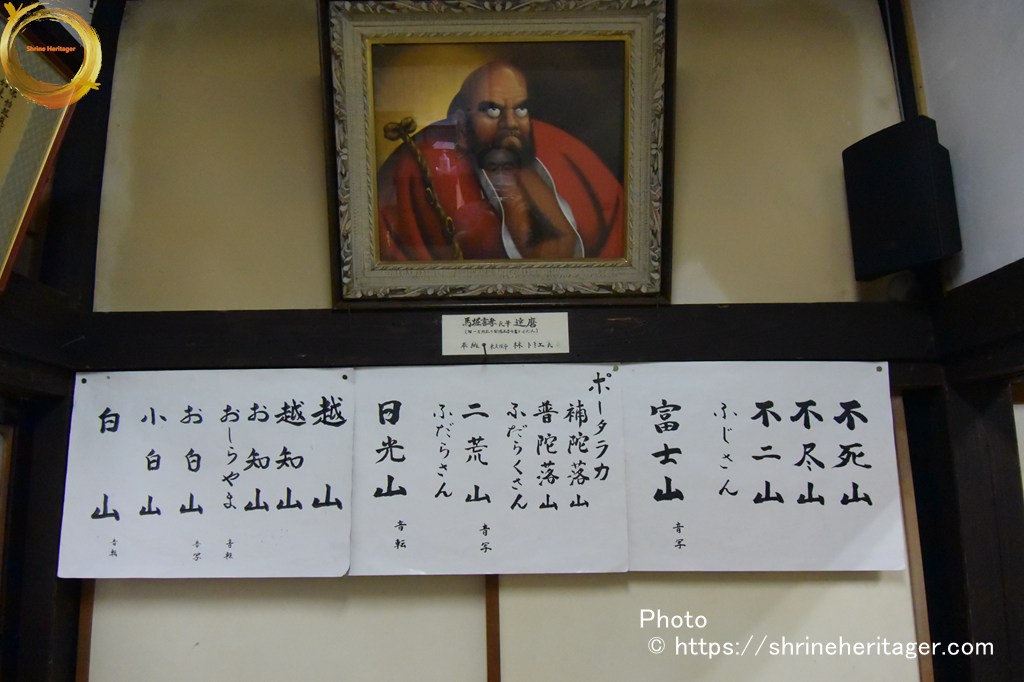 Shrine Heritager
馬堀喜孝氏筆 達磨
奉納 林トリエ
不死山
不尽山
不二山
ふじさん
富士山
音写
ポータラカ
補陀落山
普陀落山
ふだらくさん
二荒山
音写
ふだらさん
日光山
音転
越山
越知山
お知山
おしらやま
音転
お白山
音写
小白山
白山
音転
Photo
© https://shrineheritager.com